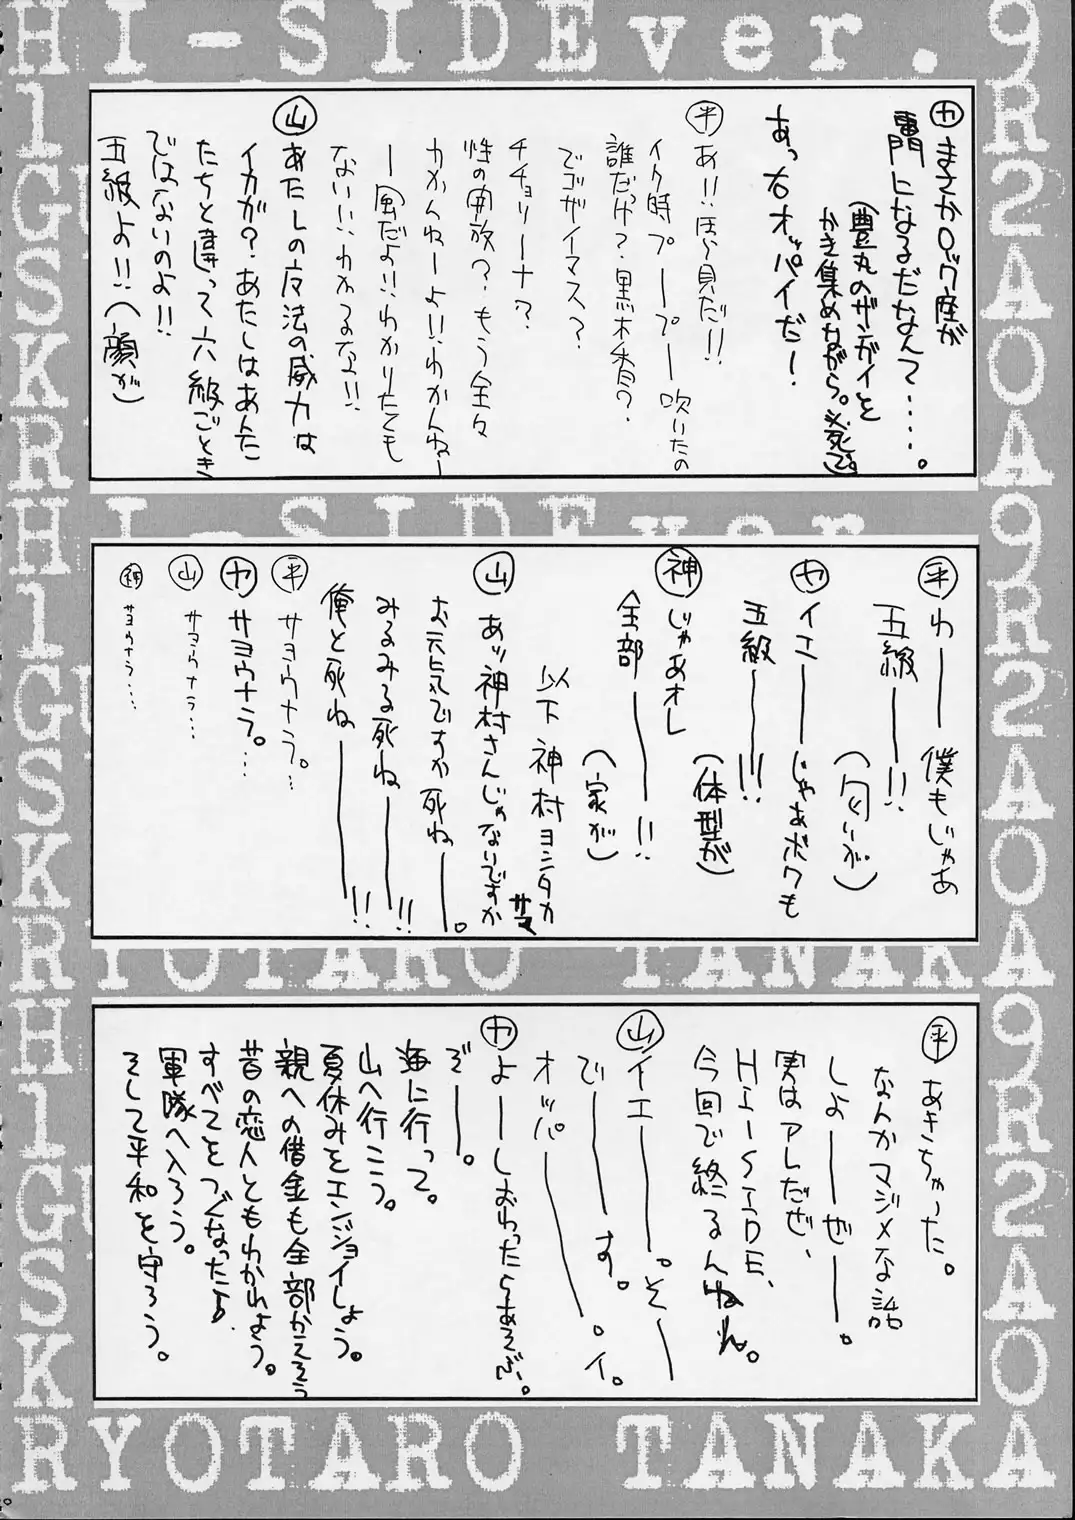 HI-SIDEver.
カ まさかロック座が
専門になるだなんて‥‥‥。
(豊丸のザンガイを
かき集めながら。必死で。)
あっ右オッパイだー!
平 あ!!ほら見だ!!
イク時プープー吹いたの
誰だっけ?黒木香?
でゴザイマス?
チチョリーナ?
性の開放?もう全々
わかんねーよ!!わかんねー
ー風だよ!!わかりたても
ない!!わかるな!!
山 あたしの文法の威力は
イカが?あたしはあんた
たちと違って六級ごとき
ではないのよ!!
五級よ!!(顔が)
平 わー 僕もじゃあ
五級ー!! (匂いが)
カ イエーじゃあボクも
五級ー!!! (体型が)
神 じゃあオレ
全部ー!! (家が)
以下神村ヨシタカサマ
山 あッ神村さんじゃないですか
お元気ですか死ねー。
みるみる死ねー!!
俺と死ねー!!
平 サヨウナラ。…
カ サヨウナラ。…
山 サヨウナラ…
神 サヨウナラ…
平 あきちゃった。
なんかマジメな話
しよーぜー。
実はアレだぜ、
HI-SIDE、
今回で終るんねん。
山 イエー。そー
でーす。
オッパー。イ。
カ よーしおわったらあそぶ。
ぞー。
海に行って。
山へ行こう。
夏休みをエンジョイしよう。
親への借金も全部かえそう
昔の恋人ともわかれよう。
すべてをつぐなったら
軍隊へ入ろう。
そして平和を守ろう。
RYOTARO TANAKA